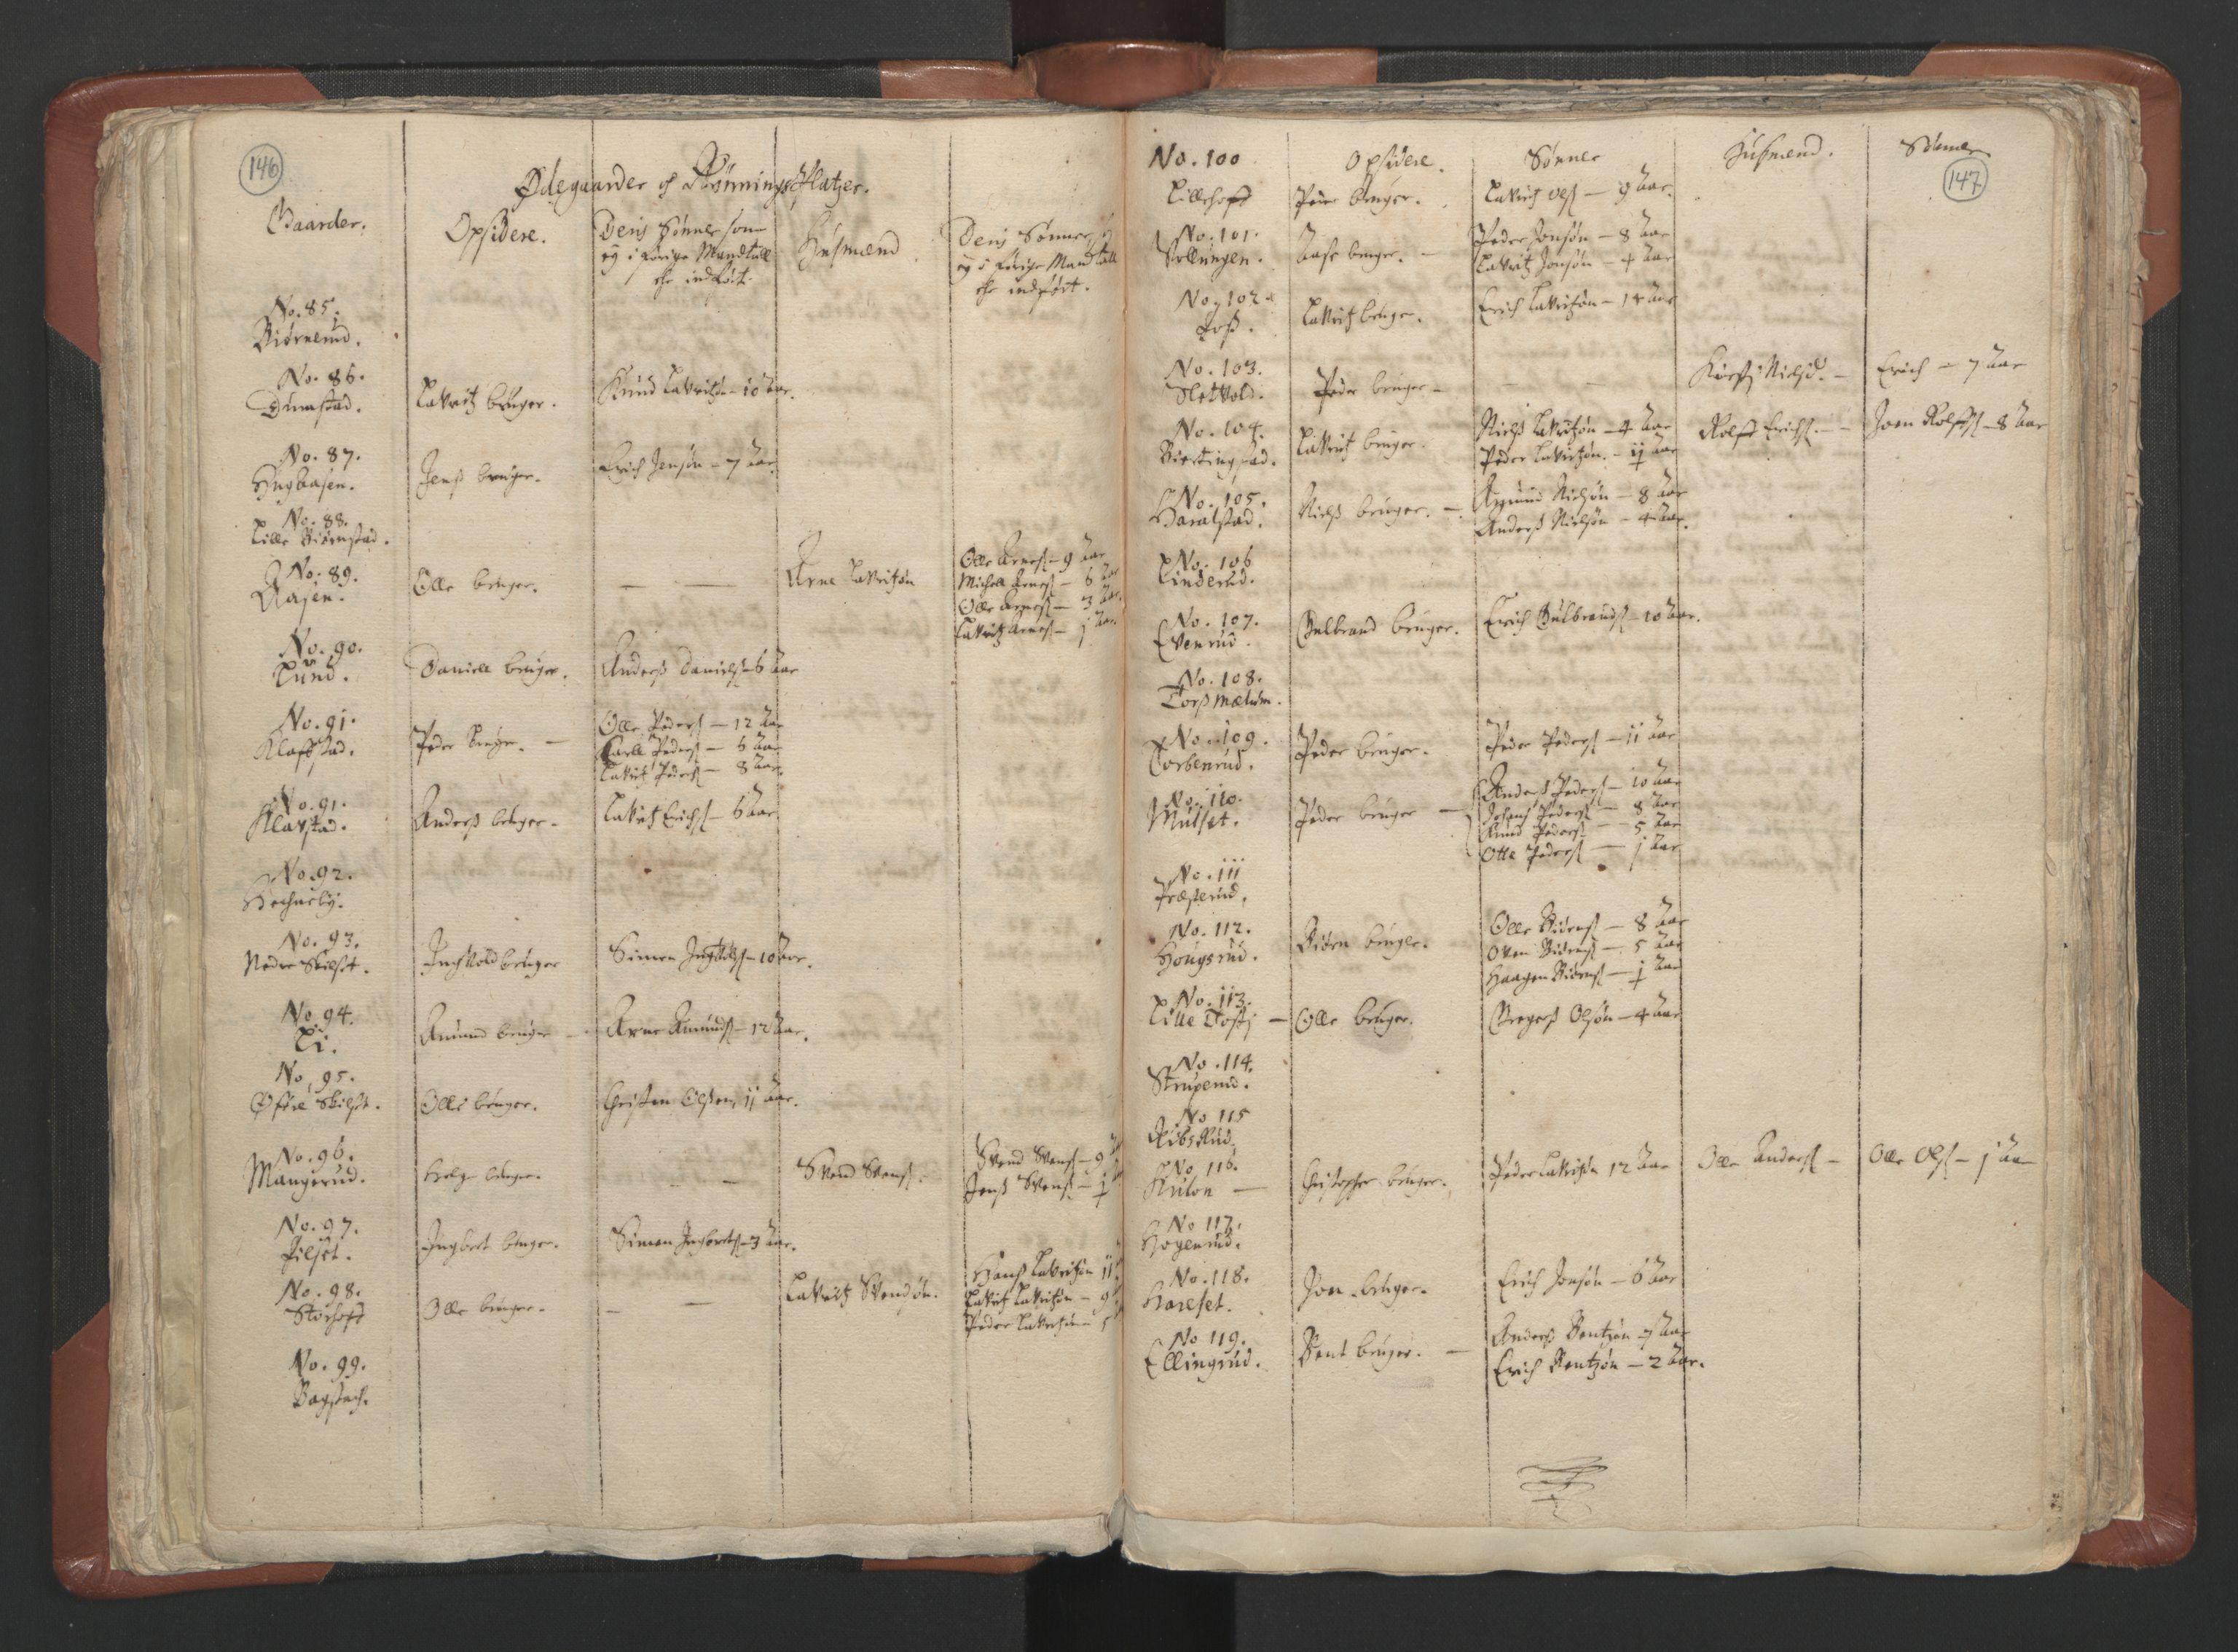 146
Ødegaarder og Rønnings Platzer.
Gaarder.
Opsidere.
Deris Sønner som
ej i forige Mandtall
ehr indført.
Husmænd
Deris Sønner
ej i forige Mandtall
ehr indført.
No. 85.
Biørnerud.
No. 86.
Lauritz bruger.
Knud Lauritzøn - 10 Aar.
No. 87.
Jens bruger.
Erich Jensøn - 7 Aar.
No. 88.
Lille Biørnstad.
No. 89.
Aasen.
Olle bruger.
Arne Lauritzøn
Olle Arnes - 9 Aar
Michell Arnes - 6 Aar
Olle Arnes - 3 Aar.
Lauritz Arnes - j Aar.
No. 90.
Lund.
Daniell bruger.
Anders Daniels - 6 Aar
No. 91.
Klaffstad.
Peder bruger. -
Olle Peders - 12 Aar
Karll Peders - 6 Aar
Lauritz Peders - 8 Aar.
No. 91.
Klavstad.
Anders bruger -
Lauritz Erichs - 6 Aar
No. 92.
No. 93.
Nedre Skilset.
Inghvold bruger
Simen - 10 Aar.
No. 94.
Li.
Amund bruger -
Arne Amunds - 12 Aar.
No. 95.
Øfre Skilset.
Olle bruger.
Christen Olsen, 11 Aar.
No. 96.
Mangerud.
Helge bruger.
Svend Svens.
Svend Svens - 9
Jens Svens - j
No. 97.
Pilset.
Ingbret bruger.
Simen Ingbrets - 3 Aar.
No. 98.
Storhoff
Olle bruger.
Lauritz Svendsøn.
Hans Lauritzøn 11
Lauritz Lauritzøn - 9
Peder Lauritzøn 5
No. 99.
147
No. 100
Opsidere.
Sønner
Husmænd.
Sønner
Lillehoff
Peder bruger.
Lauritz Ols - 9 Aar.
No. 101.
Sollungen.
Aase bruger. -
Peder Jonsøn - 8 Aar
Lauritz Jonsøn - 4 Aar
No. 102.
Foss.
Lauritz bruger.
Erich Lauritzøn - 14 Aar
No. 103.
Sletvold.
Peder bruger -
Kirsti Nielsd. -
Erich - 7 Aar
No. 104.
Lauritz bruger.
Niels Lauritzøn - 4 Aar
Peder Lauritzøn. - 1j Aar
Rolff Erichs. -
Joen Rolffs - 8 Aar
No. 105.
Haralstad.
Niels bruger. -
Amund Nielsøn - 8 Aar
Anders Nielsøn - 4 Aar.
No. 106
Linderud.
No. 107.
Evenrud.
Gulbrand bruger.
Erich Gulbrands - 10 Aar.
No. 108.
Torsmælum.
No. 109.
Torbenrud.
Peder bruger.
Peder Peders - 11 Aar
No. 110.
Mulset.
Peder bruger -
Anders Peders - 10 Aar
Johans Peders - 8 Aar
Knud Peders - 5 Aar
Otte Peders - j Aar
No. 111
Præsterud.
No. 112.
Hougsrud.
Biørn bruger.
Olle Biørns - 8 Aar
Oven Biørns - 5 Aar
Haagen Biørns - j Aar
No. 113.
Lille Tosti -
Olle bruger.
Gregers Olsøn - 4 Aar
No. 114.
Struperud.
No 115
Ribsrud.
No 116.
Kulon -
Christopher bruger.
Peder Lauritzøn 12 Aar
Olle Anders -
Olle Ols - j Aar
No 117.
Hogenrud.
No. 118.
Hareset.
Jon bruger.
Erich Jonsøn - 6 Aar
No 119.
Ellingrud.
Bent bruger. -
Anders Bentzøn - 7 Aar
Erich Bentzøn - 2 Aar.